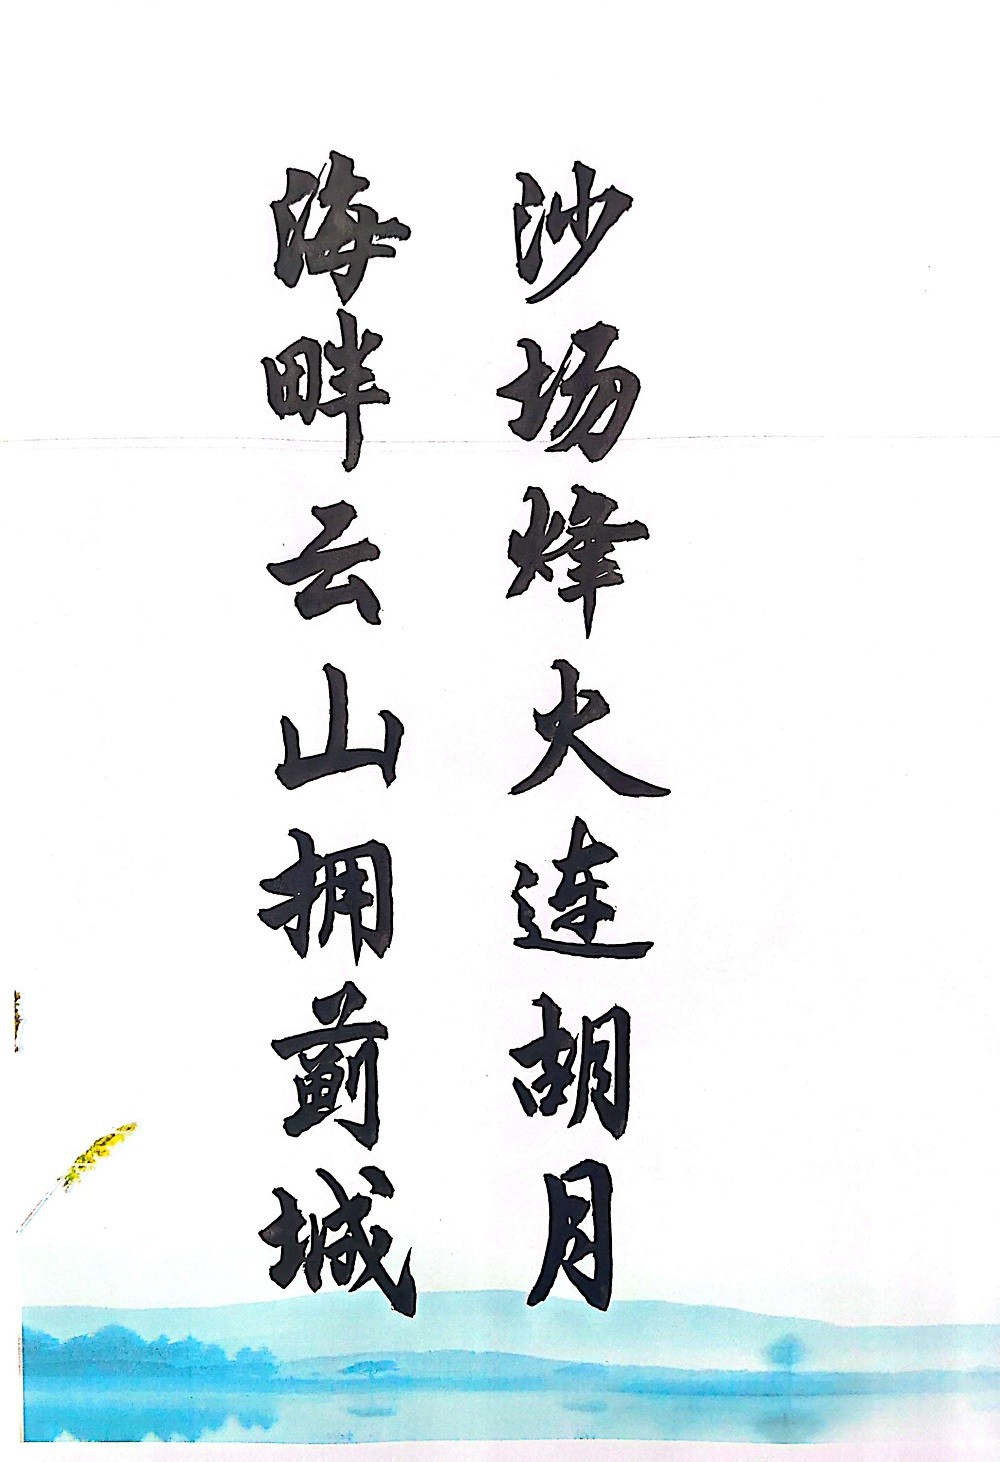 沙场烽火连胡月
海畔云山拥蓟城